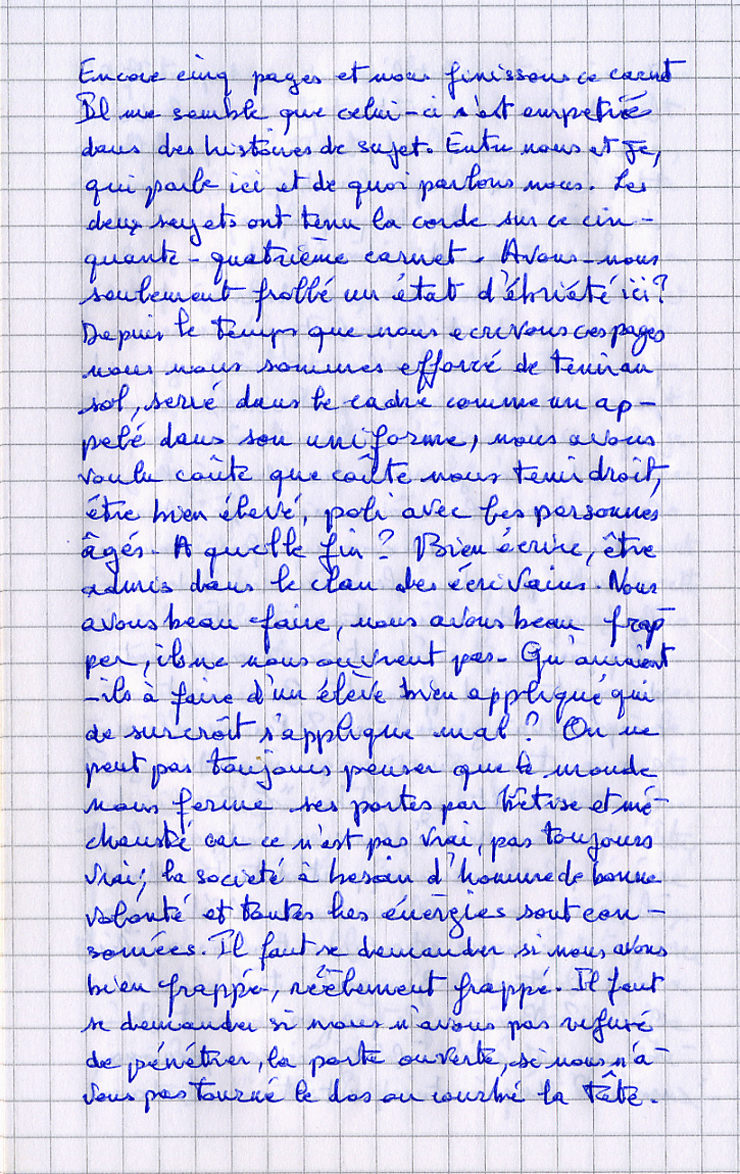 Encore cinq pages et nous finissons ce carnet
Il me semble que celui-ci s'est empetré
dans des histoires de sujet. Entre nous et je,
qui parle ici et de quoi parlons nous. Les
deux sujets ont tenu la corde sur ce cin-
quante-quatrième carnet. Avons-nous
seulement frollé un état d'ébriété ici?
Depuis le temps que nous ecrivons ces pages
nous nous sommes efforcé de tenir au
sol, serré dans le cadre comme un ap-
pelé dans son uniforme, nous avons
voulu coûte que coûte nous tenir droit,
être bien élevé, poli avec les personnes
âgés. A quelle fin? Bien écrire, être
admis dans le clan des écrivains. Nous
avons beau faire, nous avons beau frap-
per, ils ne nous ouvrent pas. Qu'auraient
-ils à faire d'un élève bien appliqué qui
de surcroît s'applique mal? On ne
peut pas toujours penser que le monde
nous ferme ses portes par bêtise et mé-
chanseté car ce n'est pas vrai, pas toujours
vrai; la société à besoin d'homme de bonne
volonté et toutes les énergies sont con-
somées. Il faut se demander si nous avons
bien frappé, réellement frappé. Il faut
se demander si nous n'avons pas refusé
de pénétrer, la porte ouverte, si nous n'a-
vons pas tourné le dos ou courbé la tête.